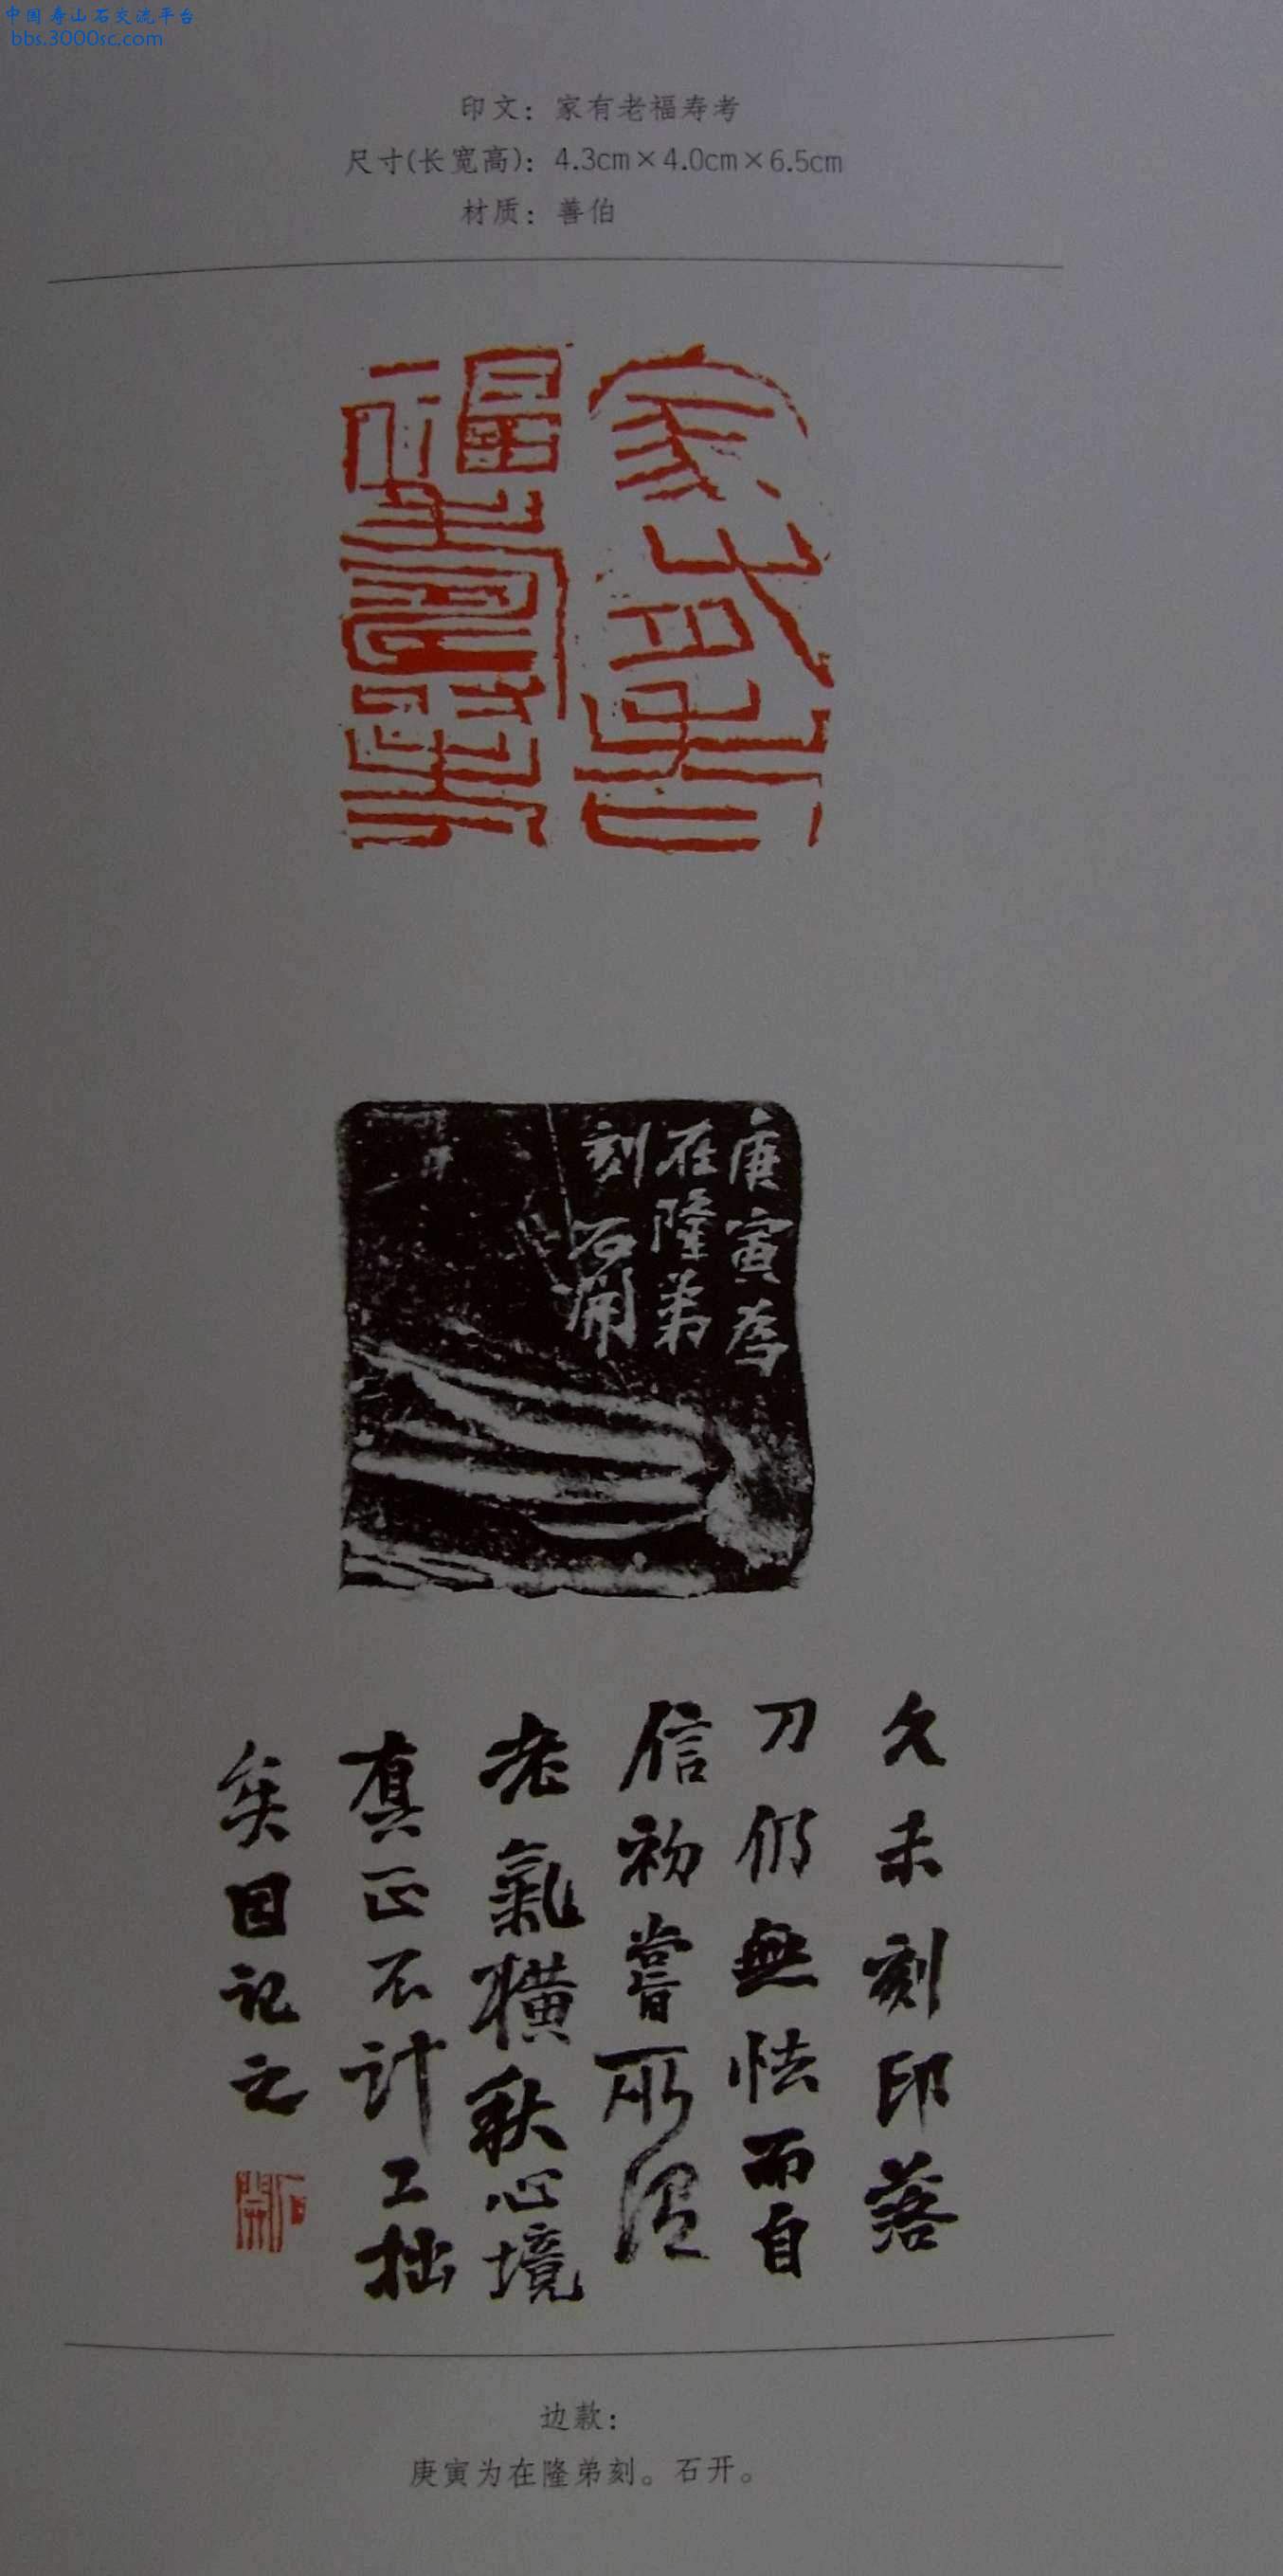 中国寿山石交流平台
bbs.3000sc.com
印文：家有老福寿考
尺寸(长宽高)：4.3cm×4.0cm×6.5cm
材质：善伯
家有老
福壽考
庚寅為
在隆弟
刻 石開
久未刻印落
刀仍無怯而自
信初嘗所謂
老氣橫秋心境
真正不計工拙
矣因記之
石開
边款：
庚寅为在隆弟刻。石开。